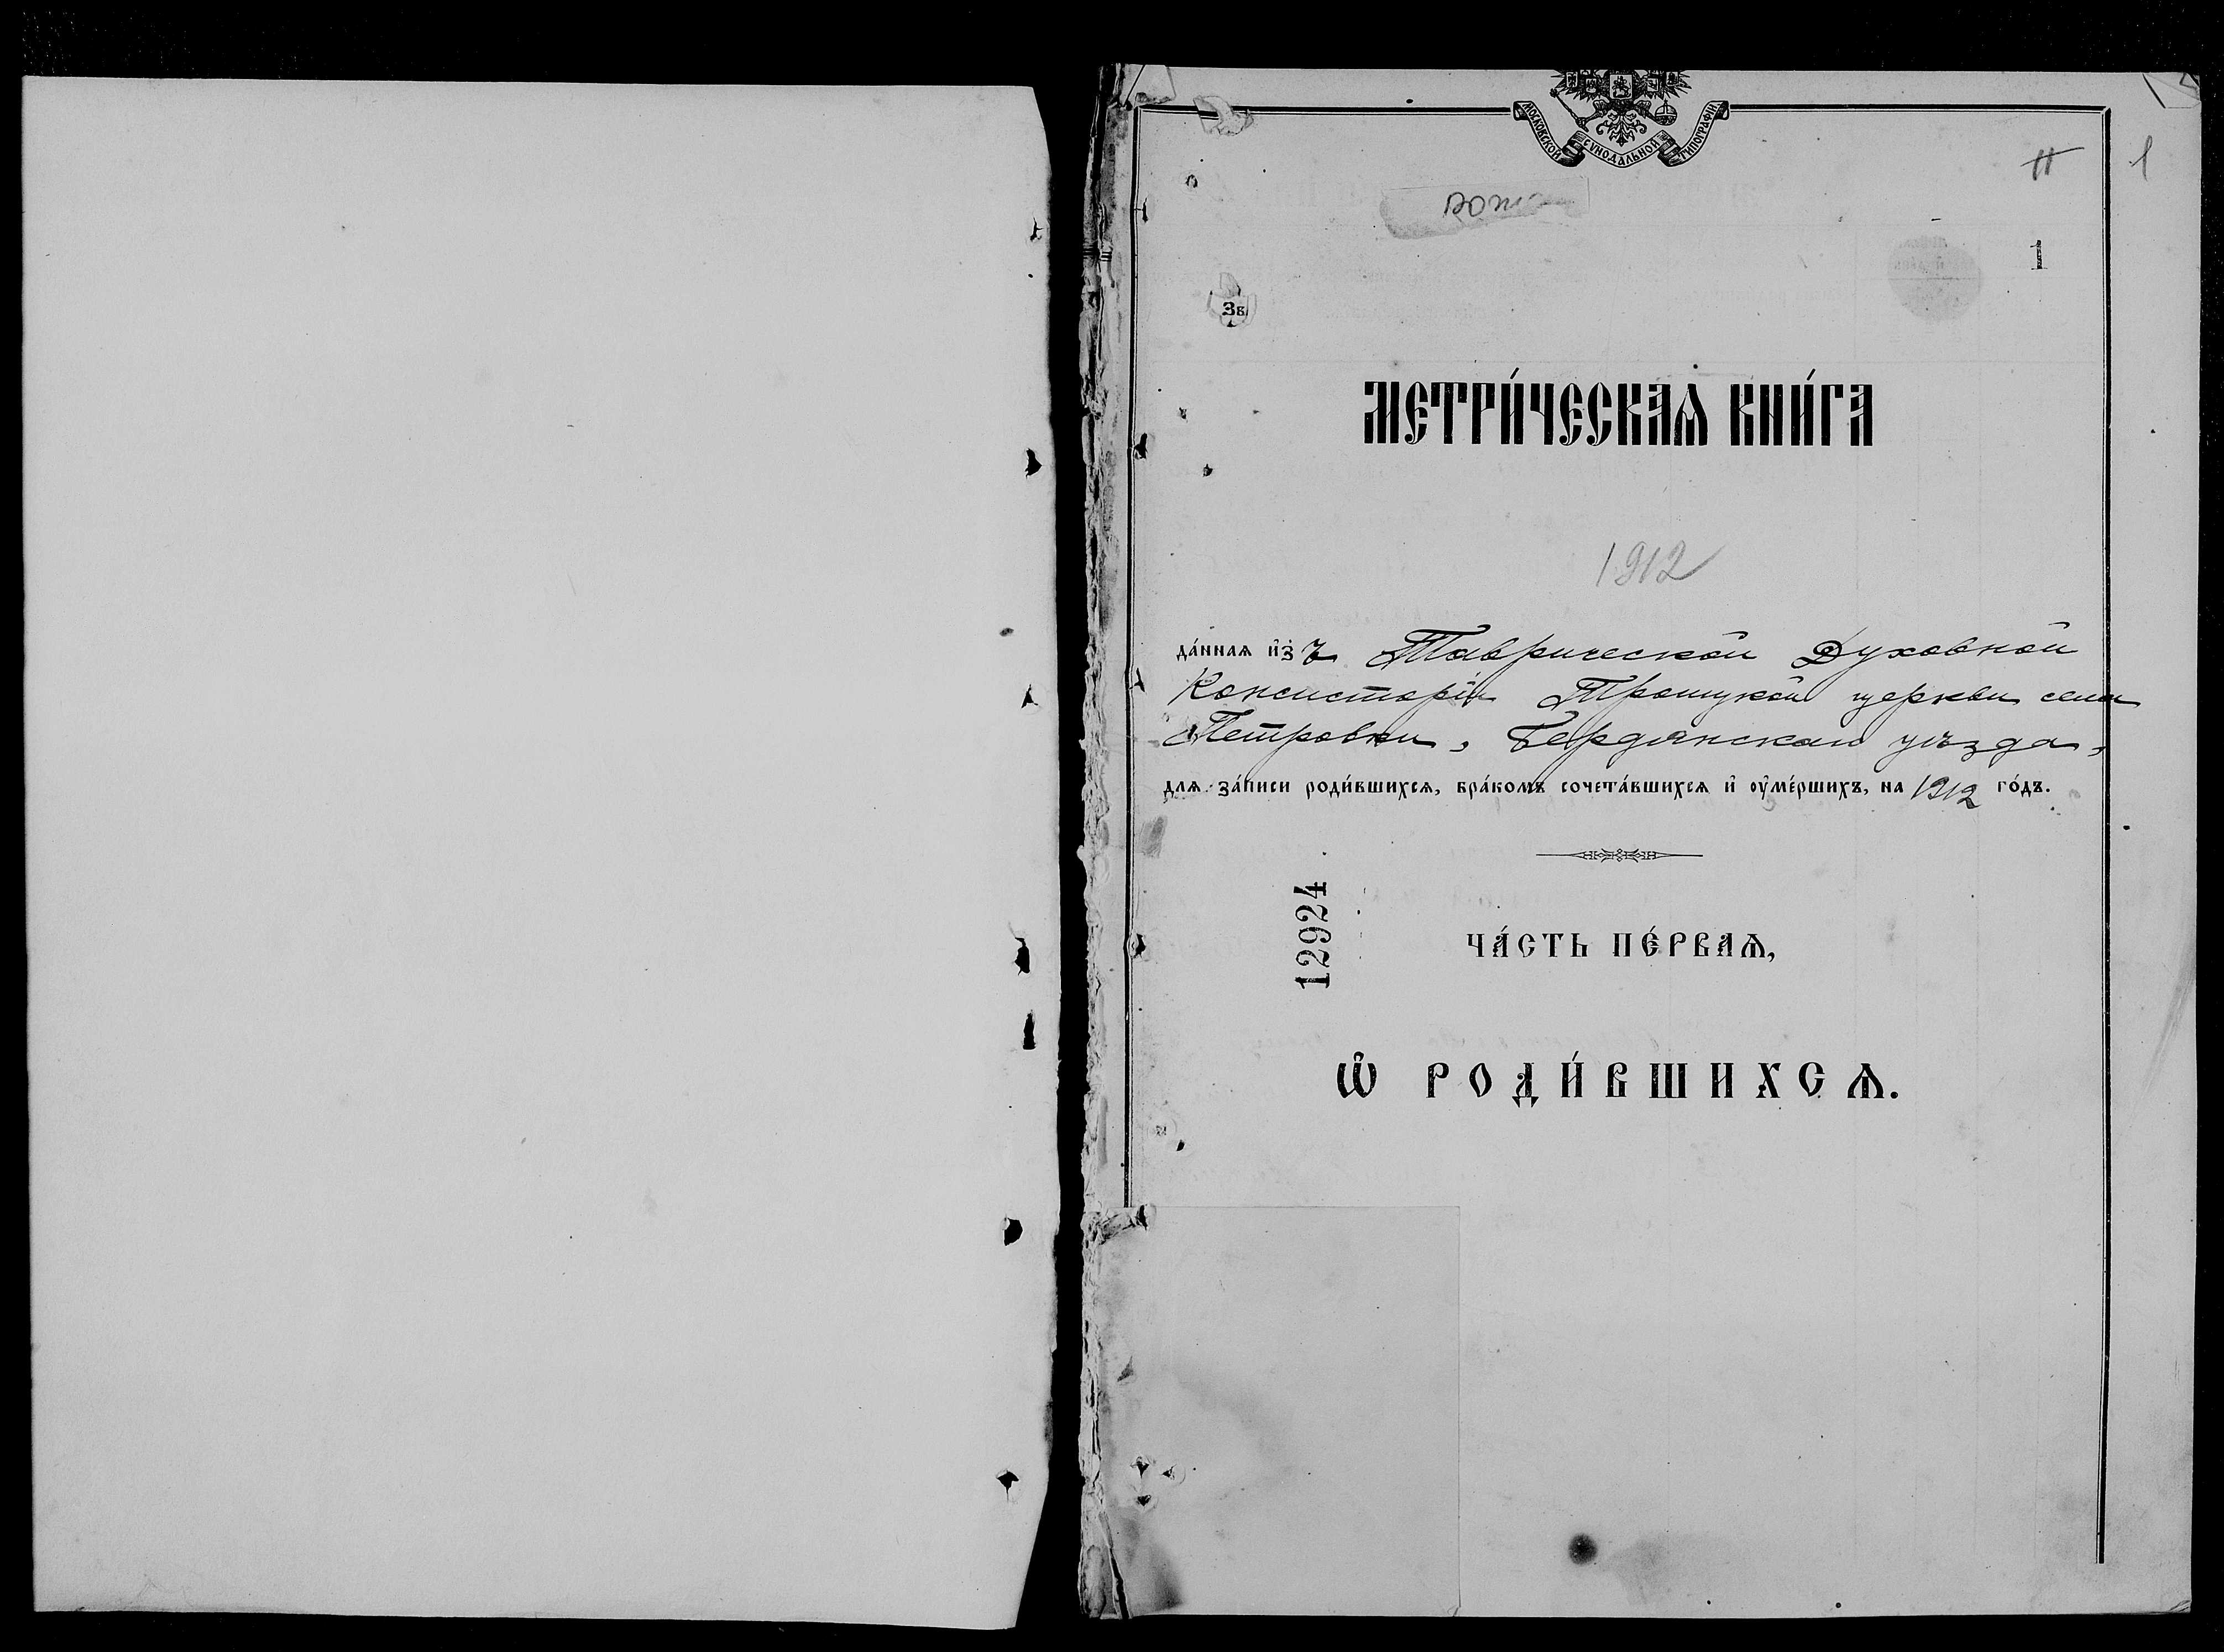 МОСКОВСКОЙ СѴНОДАЛЬНОЙ ТИПОГРАФІИ
1
1
Зв
МЕТРИ́ЧЕСКАѦ КНИ́ГА
1912
да́ннаѧ и҆зъ Таврической Духовной
Консисторіи Троицкой церкви села
Петровки, Бердянскаго уѣзда,
длѧ за́писи роди́вшихсѧ, бра́комъ сочета́вшихсѧ и҆ ᲂу҆ме́ршихъ, на 1912 го́дъ.
12924
ЧА́СТЬ ПЕ́РВАѦ,
Ѡ҆ РОДИ́ВШИХСѦ.